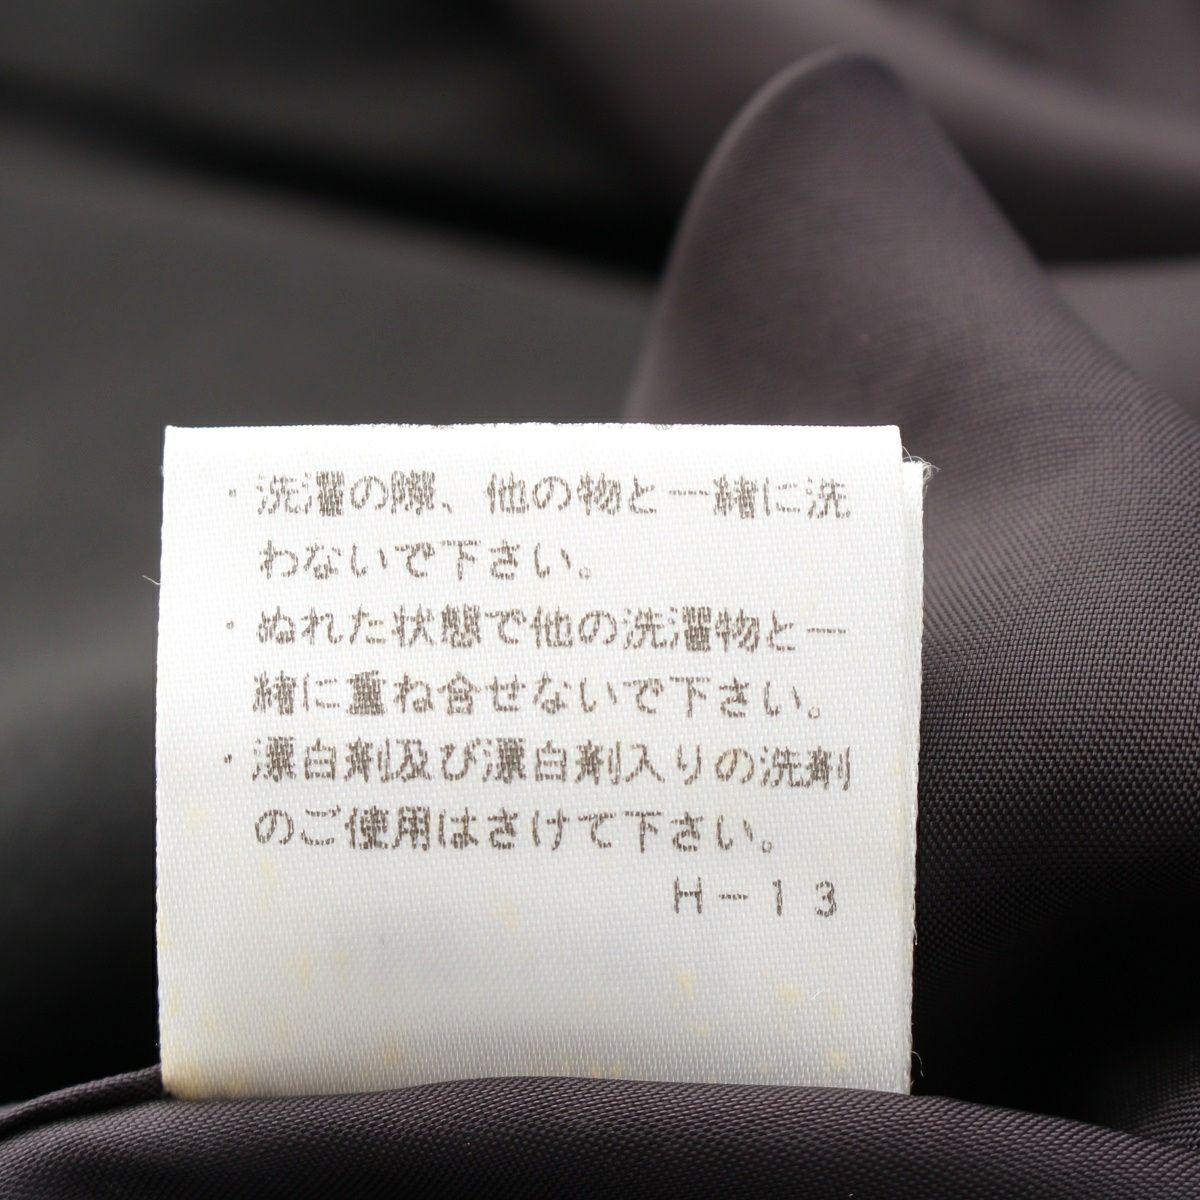 ・洗濯の際、他の物と一緒に洗
わないで下さい。
・ぬれた状態で他の洗濯物と一
緒に重ね合せないで下さい。
・漂白剤及び漂白剤入りの洗剤
のご使用はさけて下さい。
H-13